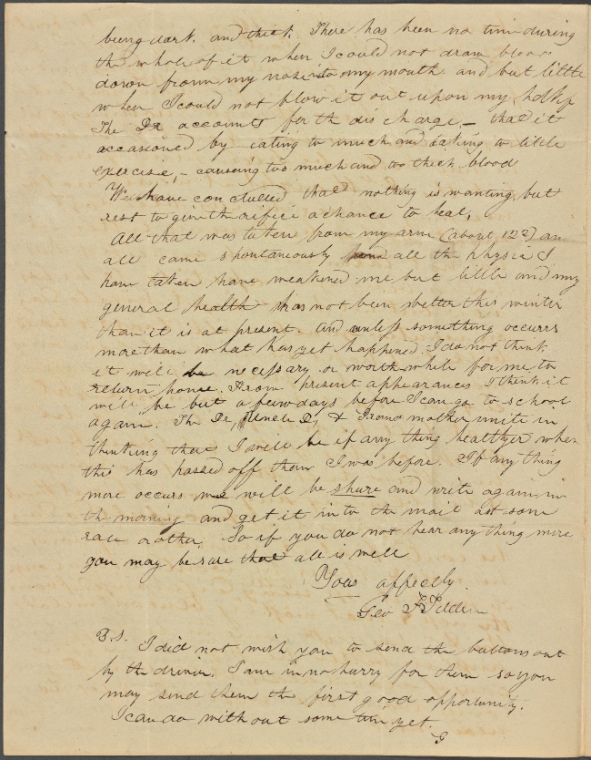 being dark and thick. There has been no time during
the whole of it when I could not draw blood
down from my nose into my mouth and but little
when I could not blow it out upon my hdkf
The Dr accounts for the discharge – that it
occasioned by eating to much and taking to little
exercise, – causing too much and too thick blood
We have concluded that nothing is wanting but
rest to give the orifice a chance to heal,
All that was taken from my arm (about 12 z) an
all came spontaneously all the physic I
have taken have weakened me but little and my
general health has not been better this winter
than it is at present. And unless something occurrs
more than what has yet happened I do not think
it will be necessary or worth while for me to
return home. From present appearances I think it
will be but a few days before I can go to school
again. The Dr, Uncle D, & Grand mother unite in
thinking that I will be if any thing healthyer when
this has passed off than I was before. If any thing
more occurs we will be shure and write again in
the morning and get it in to the mail at som
rate or other So if you do not hear any thing more
you may be sure that all is well
Yours affectly.
Geo F
P.S. I did not wish you to send the buttons out
by the driver. I am in no hurry for them so you
may send them the first good opportunity.
I can do with out some time yet.
G